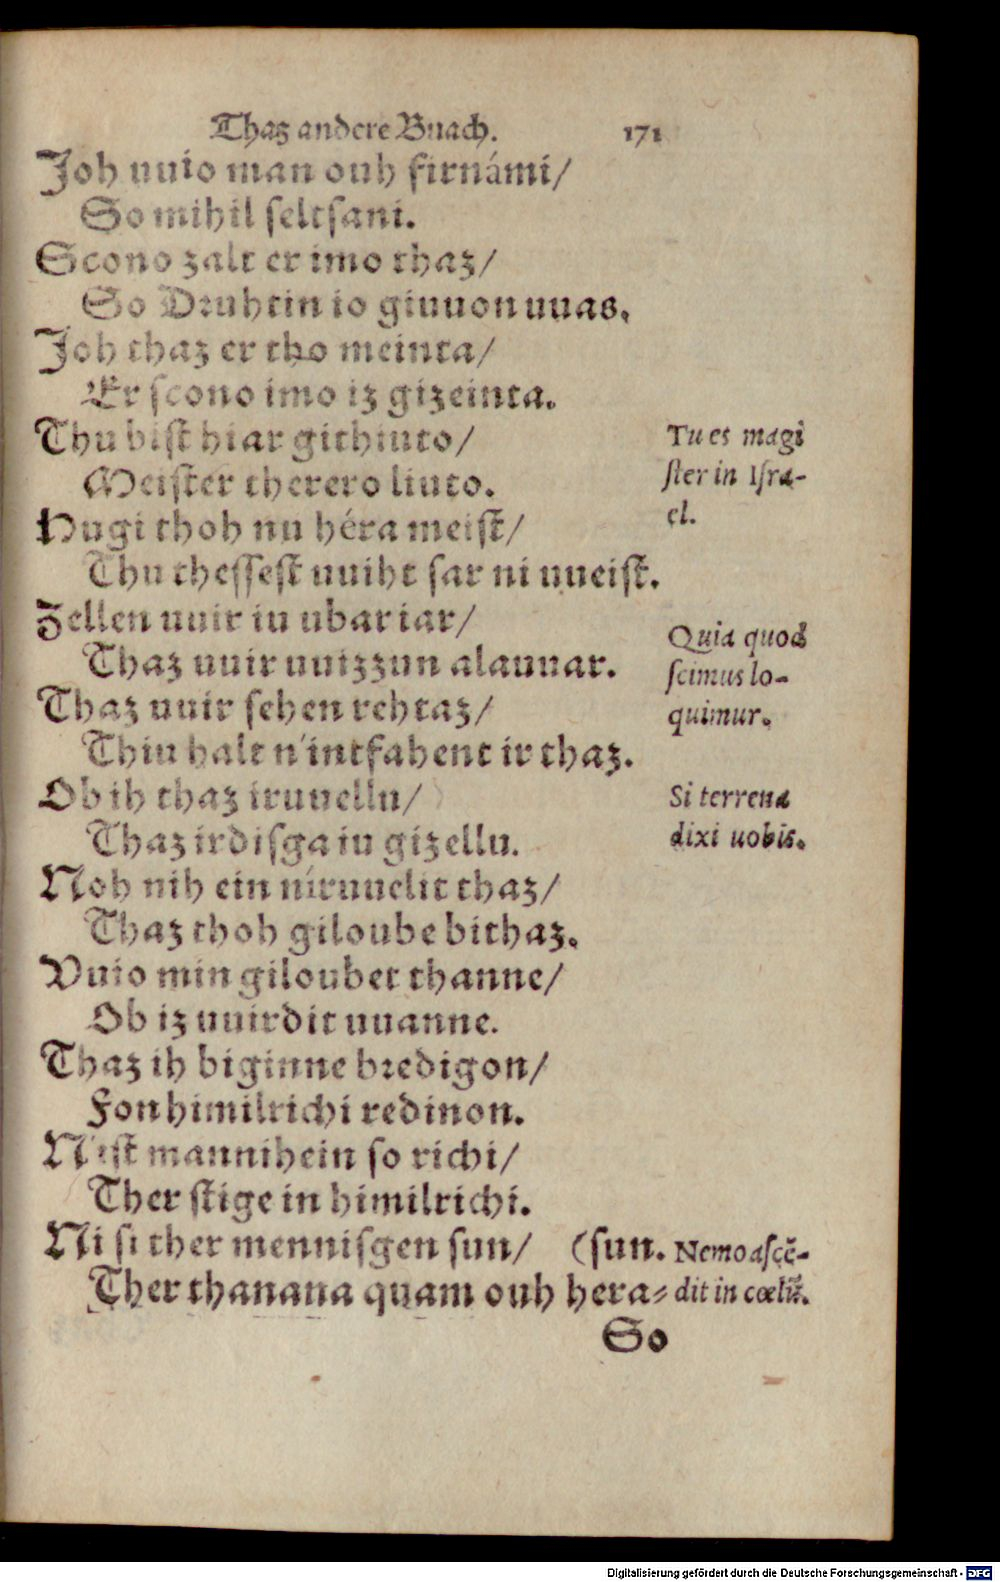 Thaz andere Buach. 171
Joh uuio man ouh firnámi/
So mihil seltsani.
Scono zalt er imo thaz/
So Druhtin io giuuon uuas.
Joh thaz er tho meinta/
Er scono imo iz gizeinta.
Thu bist hiar githiuto/
Meister therero liuto.
Hugi thoh nu héra meist/
Thu thessest uuiht sar ni uueist.
Zellen uuir iu ubar iar/
Thaz uuir uuizzun alauuar.
Thaz uuir sehen rehtaz/
Thiu halt n'intfahent ir thaz.
Ob ih thaz iruuellu/
Thaz irdisga iu gizellu.
Noh nih ein níruuelit thaz/
Thaz thoh giloube bithaz.
Vuio min giloubet thanne/
Ob iz uuirdit uuanne.
Thaz ih biginne bredigon/
Fon himilrichi redinon.
N'ist mannihein so richi/
Ther stige in himilrichi.
Ni si ther mennisgen sun/ (sun.
Ther thanana quam ouh hera⸗
So
Tu es magi
ster in Isra-
el.
Quia quod
scimus lo-
quimur.
Si terrena
dixi uobis.
Nemo ascē-
dit in cœlū.
Digitalisierung gefördert durch die Deutsche Forschungsgemeinschaft - DFG